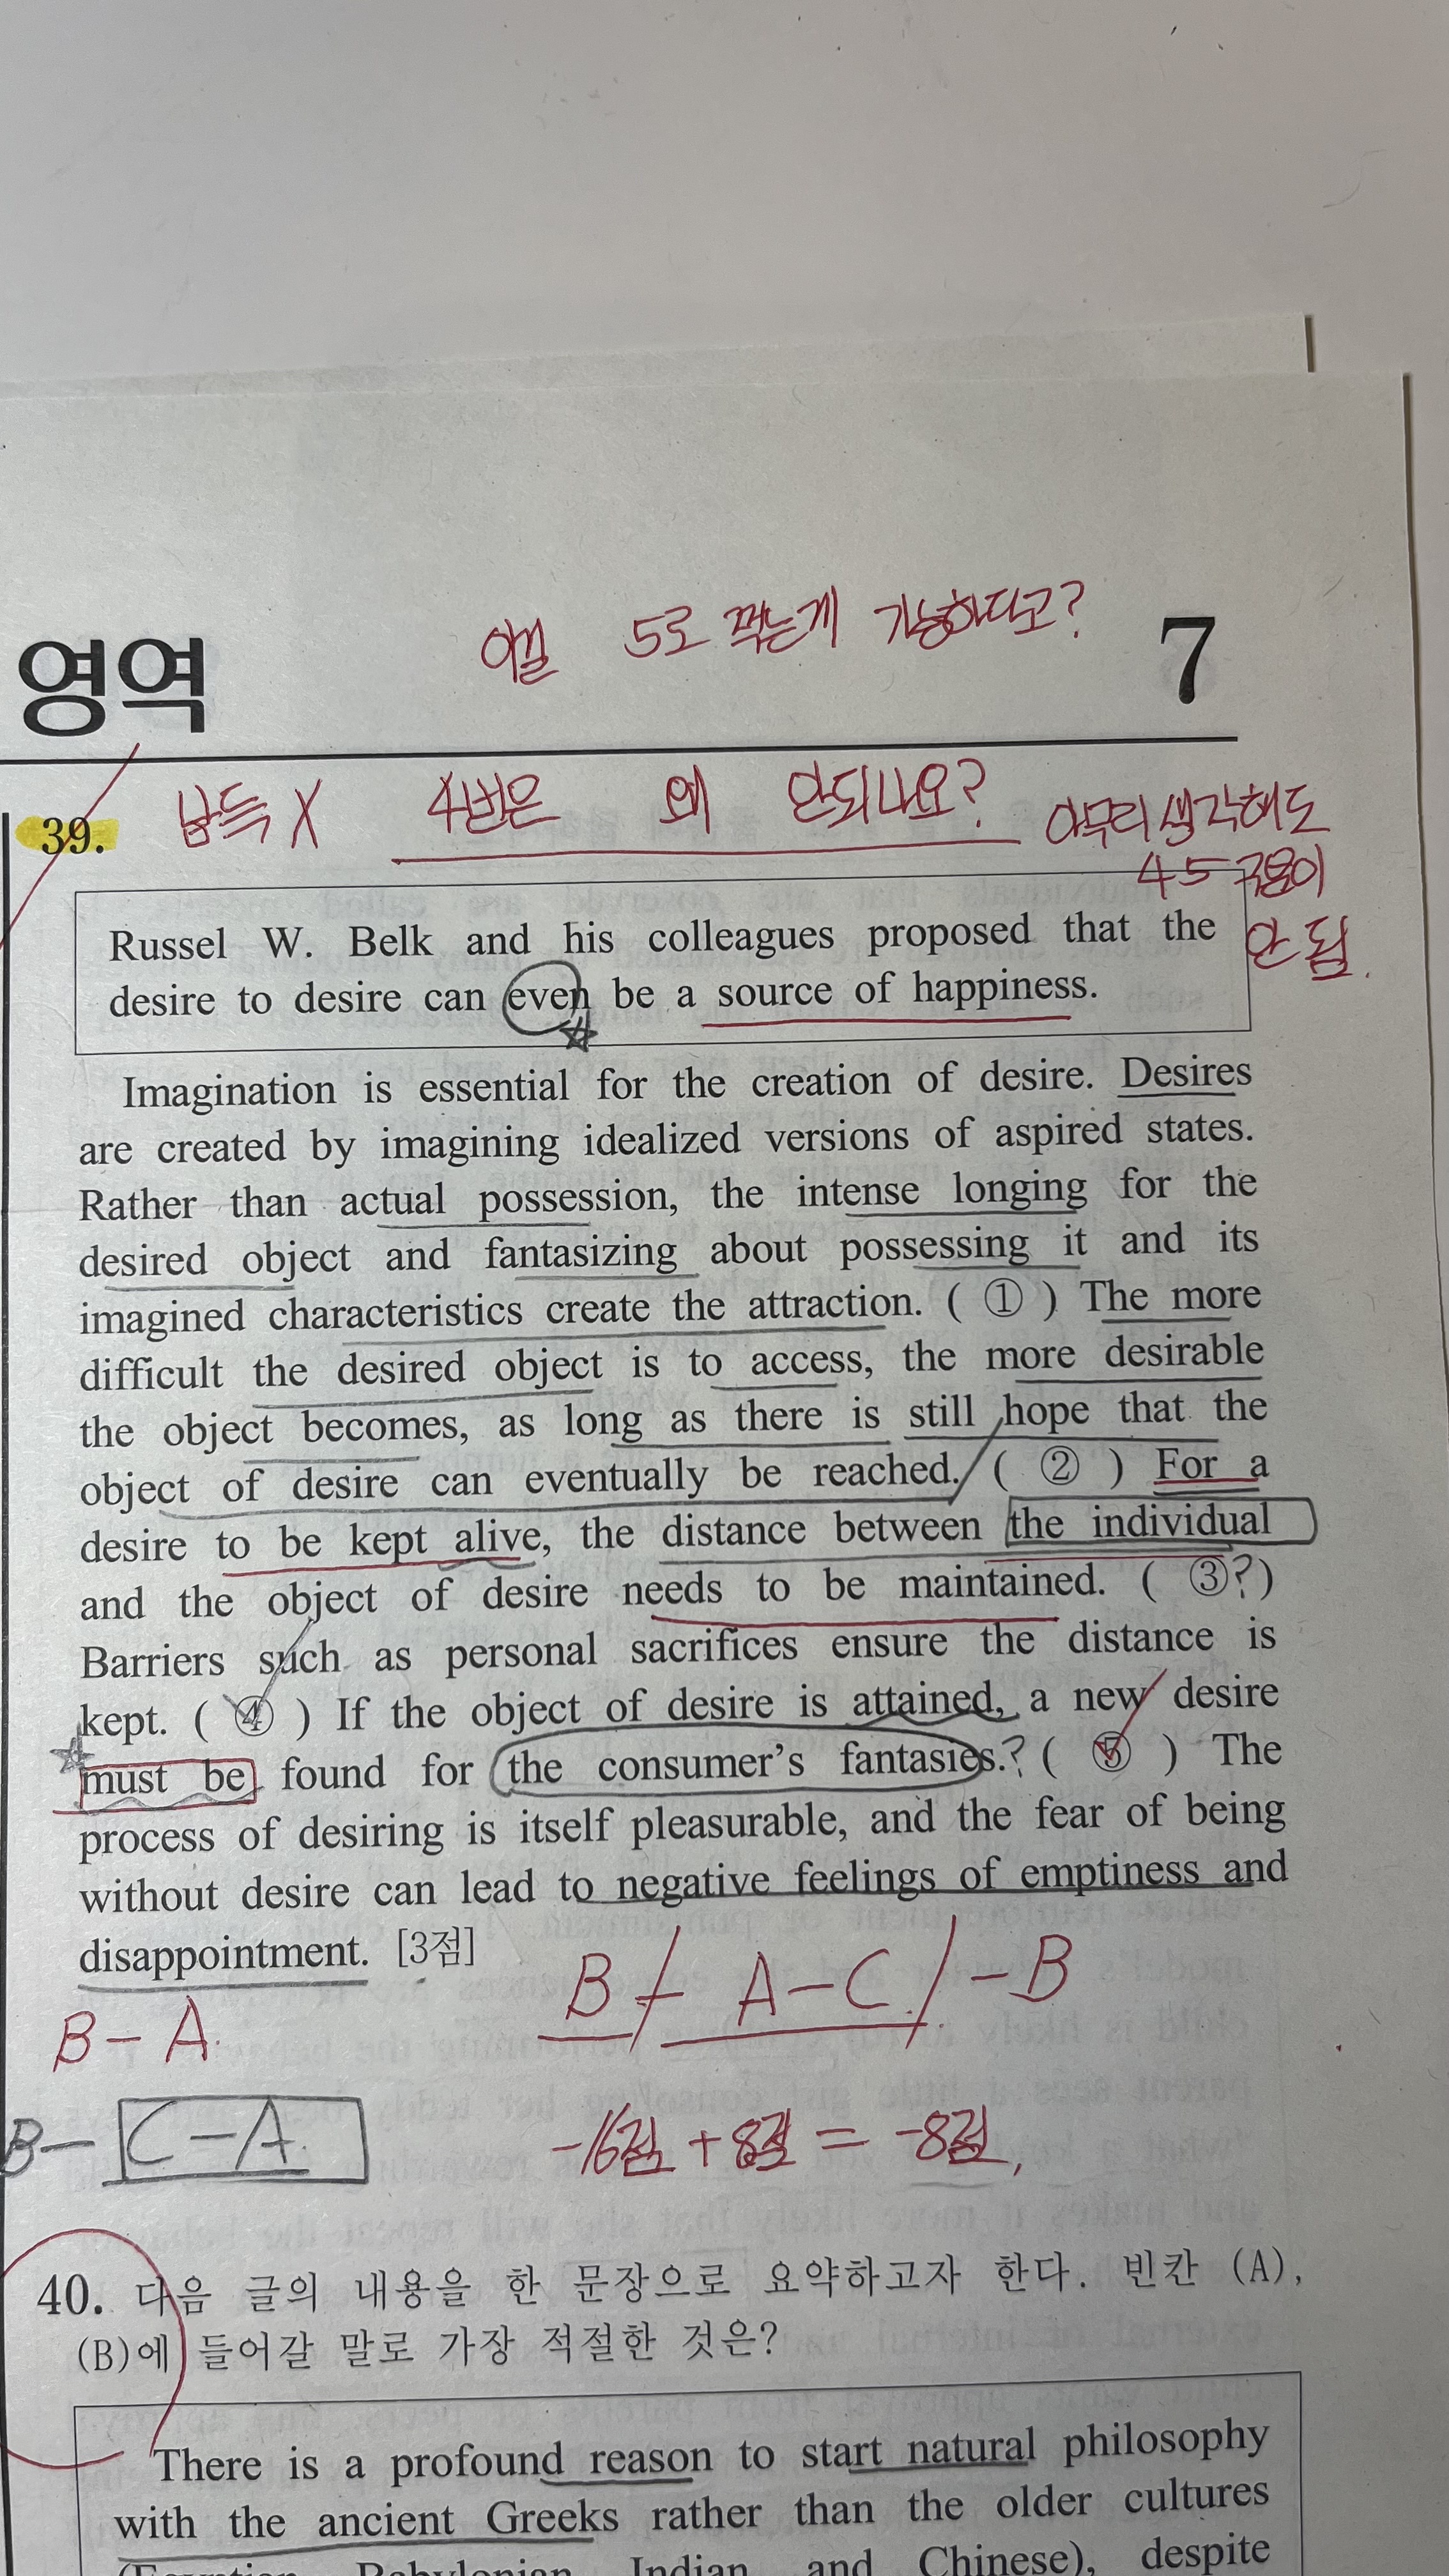 이걸 5로 찍는게 가능하다고?
영역
7
납득 X 4번은 왜 안되나요? 아무리 생각해도
4 5 구분이
안 됨.
39.
Russel W. Belk and his colleagues proposed that the
desire to desire can even be a source of happiness.
Imagination is essential for the creation of desire. Desires
are created by imagining idealized versions of aspired states.
Rather than actual possession, the intense longing for the
desired object and fantasizing about possessing it and its
imagined characteristics create the attraction. ( ① ) The more
difficult the desired object is to access, the more desirable
the object becomes, as long as there is still hope that the
object of desire can eventually be reached. ( ② ) For a
desire to be kept alive, the distance between the individual
and the object of desire needs to be maintained. ( ③? )
Barriers such as personal sacrifices ensure the distance is
kept. ( ④ ) If the object of desire is attained, a new desire
must be found for the consumer's fantasies.? ( ⑤ ) The
process of desiring is itself pleasurable, and the fear of being
without desire can lead to negative feelings of emptiness and
disappointment. [3점]
B / A - C / - B
B - A.
B - C - A.
-16점 + 8점 = -8점,
40. 다음 글의 내용을 한 문장으로 요약하고자 한다. 빈칸 (A),
(B)에 들어갈 말로 가장 적절한 것은?
There is a profound reason to start natural philosophy
with the ancient Greeks rather than the older cultures
(Egyptian, Babylonian, Indian, and Chinese), despite